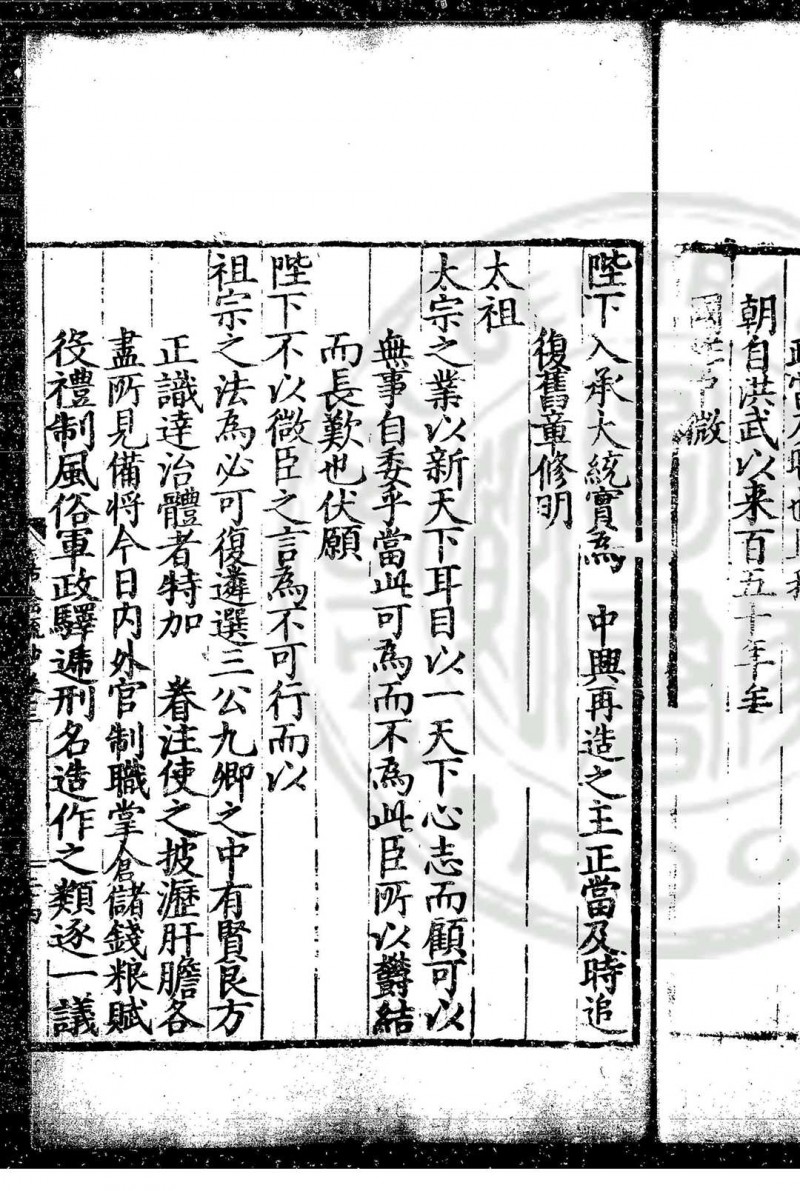 朝自洪武以来百五十年年
中微
陛下入承大統實為　中興再造之主正當及時追
復舊章修明
太祖
太宗之業以新天下耳目以一天下心志而顧可以
無事自委乎當此可為而不為此臣所以欝結
而長歎也伏願
陛下不以微臣之言為不可行而以
祖宗之法為必可復遴選三公九卿之中有賢良方
正識達治體者特加　眷注使之披瀝肝膽各
盡所見備將今日内外官制職掌倉儲錢粮賦
役禮制風俗軍政驛遞刑名造作之類逐一議